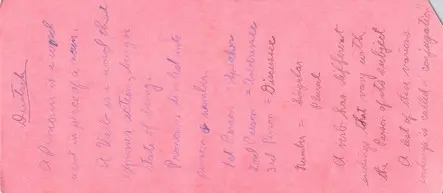 A Pronoun is a word
used in place of a noun.
A Verb is a word that
expresses action, being or
state of being.
Pronouns divided into
person & number.
1st Person = Speaker
2nd Person =
3rd Person =
Number = Singular
Plural
A verb has different
endings that vary with
the Person of its subject
A list of these various
endings is called a conjugation